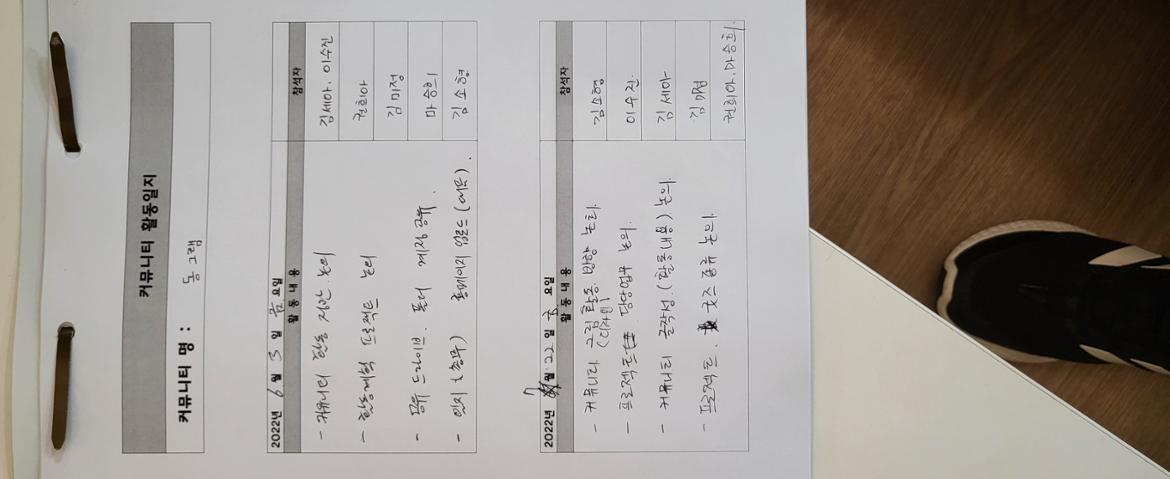 커뮤니티 활동일지
커뮤니티 명 : 동그램
2022년 6월 3일 금요일
활 동 내 용 참석자
- 커뮤니티 활동 제안 논의 김세아. 이수진
- 활동계획 프로젝트 논의 권희아
- 공유 드라이브. 폴더 계정 공유. 김미정
마승희
- 일지 (총무) 홈페이지 업로드 김소형
2022년 7월 22일 금요일
활 동 내 용 참석자
- 커뮤니티 그림 활동. 방향 논의. 김소형
(디자인)
- 프로젝트 담당업무 논의. 이수진.
- 커뮤니티 글작성. (활동내용) 논의. 김세아
- 프로젝트. 굿즈 종류 논의. 김미정
권희아. 마승희.